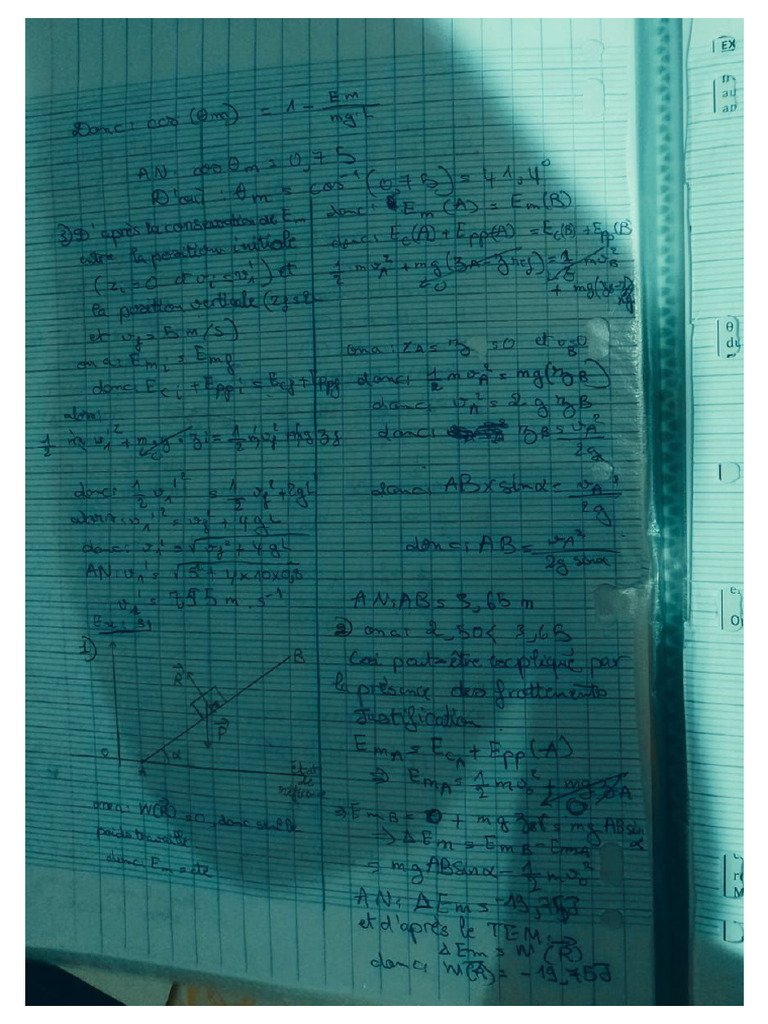 Donc: cos (θm) = 1 - Em / mgL
AN: cos θm = 0,75
D'où: θm = cos⁻¹ (0,75) = 41,4°
3) D'après la conservation de Em
entre la position initiale
(zi = 0 et vi = v1') et
la position verticale (zf = 2L
et vf = 5 m/s)
on a: Emi = Emf
donc: Eci + Eppi = Ecf + Eppf
alors:
1/2 m v1'² + mg zi = 1/2 m vf² + mg zf
0
donc: 1/2 v1'² = 1/2 vf² + 2gL
v1'² = vf² + 4gL
donc: v1' = √(vf² + 4gL)
AN: v1' = √(5² + 4×10×0,8
v1' = 7,55 m.s⁻¹
Ex: 3:
1)
B
R
P
α
O
A
Etat
de
référence
on a: W(R) = 0, donc seul le
poids travaille
donc: Em = cte
donc: Em(A) = Em(B)
donc: Ec(A) + Epp(A) = Ec(B) + Epp(B
1/2 m vA² + mg(zA - zref) = 1/2 m vB²
+ mg(zB - zref
on a: zA = 0 et vB = 0
donc: 1/2 m vA² = mg(zB)
donc: vA² = 2 g zB
donc: zB = vA² / 2g
donc: AB × sinα = vA² / 2g
donc: AB = vA² / 2g sinα
AN: AB = 3,65 m
2) on a: 2,50 < 3,65
Ceci peut-être expliqué par
la présence des frottements
Justification
EmA = EcA + Epp(A)
⇒ EmA = 1/2 m v0² + mg zA
0
⇒ EmB = 0 + mg zB = mg AB sinα
⇒ ΔEm = EmB - EmA
= mgABsinα - 1/2 m v0²
AN: ΔEm = -19,75J
et d'après le TEM:
ΔEm = W(R)
donc: W(R) = -19,75J
EX
m
au
an
θ
du
e.
O
r
M